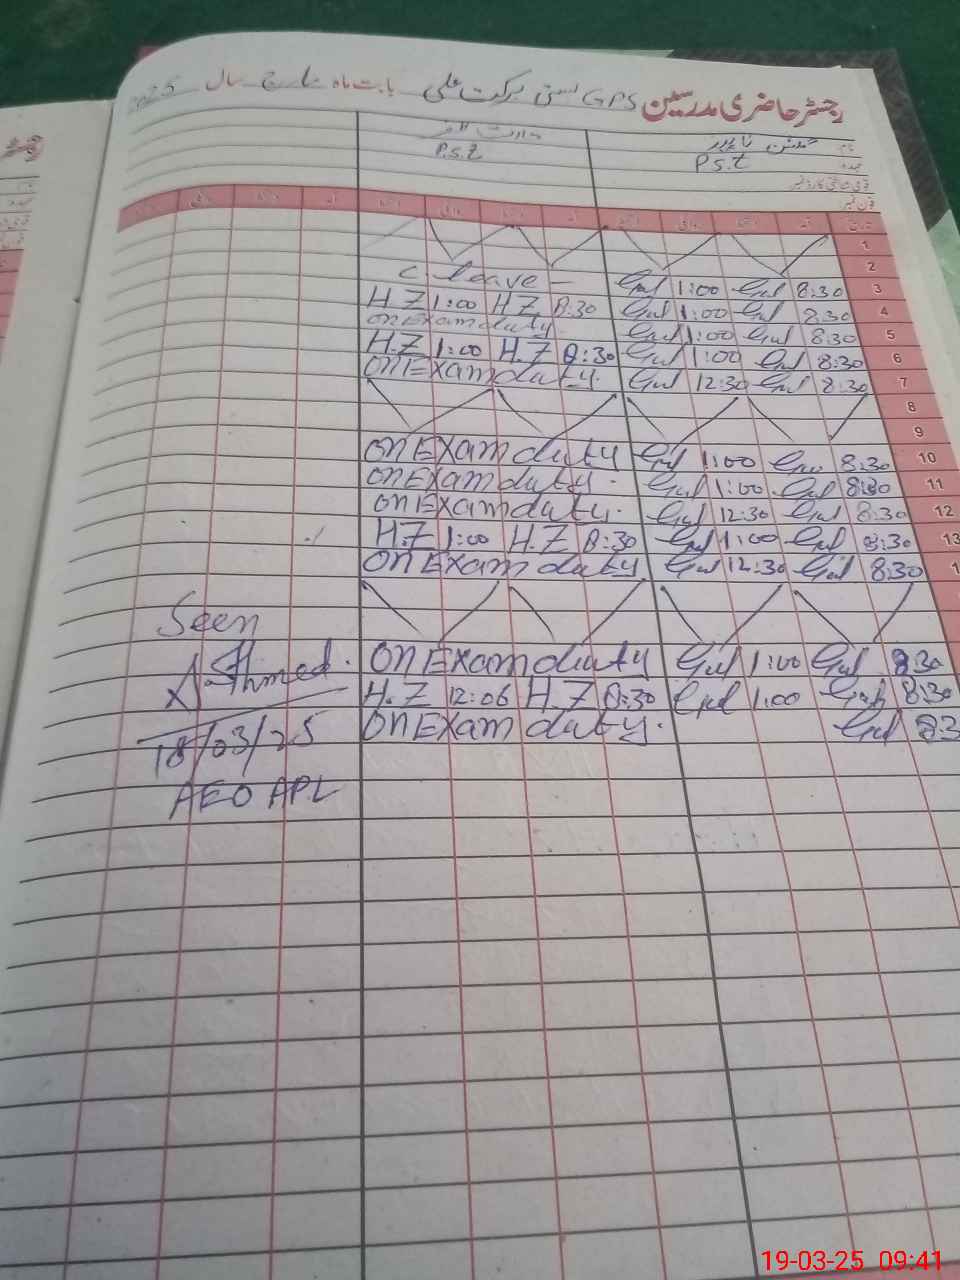 رجسٹر حاضری مدرسین GPS بستی برکت علی بابت ماہ مارچ سال 2025
نام
عہدہ P.s.t P.s.t
قومی شناختی کارڈ نمبر
فون نمبر
تاریخ آمد دستخط روانگی دستخط آمد دستخط روانگی دستخط آمد دستخط روانگی
1
2
C. leave - Gul 1:00 Gul 8:30 3
H.Z 1:00 H.Z 8:30 Gul 1:00 Gul 8:30 4
on Exam duty Gul 1:00 Gul 8:30 5
H.Z 1:00 H.Z 8:30 Gul 1:00 Gul 8:30 6
on Exam duty. Gul 12:30 Gul 8:30 7
8
9
on Exam duty Gul 1:00 Gul 8:30 10
on Exam duty. Gul 1:00 Gul 8:30 11
on Exam duty. Gul 12:30 Gul 8:30 12
H.Z 1:00 H.Z 8:30 Gul 1:00 Gul 8:30 13
on Exam duty Gul 12:30 Gul 8:30 1
Seen
Ahmed. on Exam duty Gul 1:00 Gul 8:30
H.Z 12:06 H.Z 8:30 Gul 1:00 Gul 8:30
18/03/25 on Exam duty. Gul 8:3
AEO APL
19-03-25 09:41